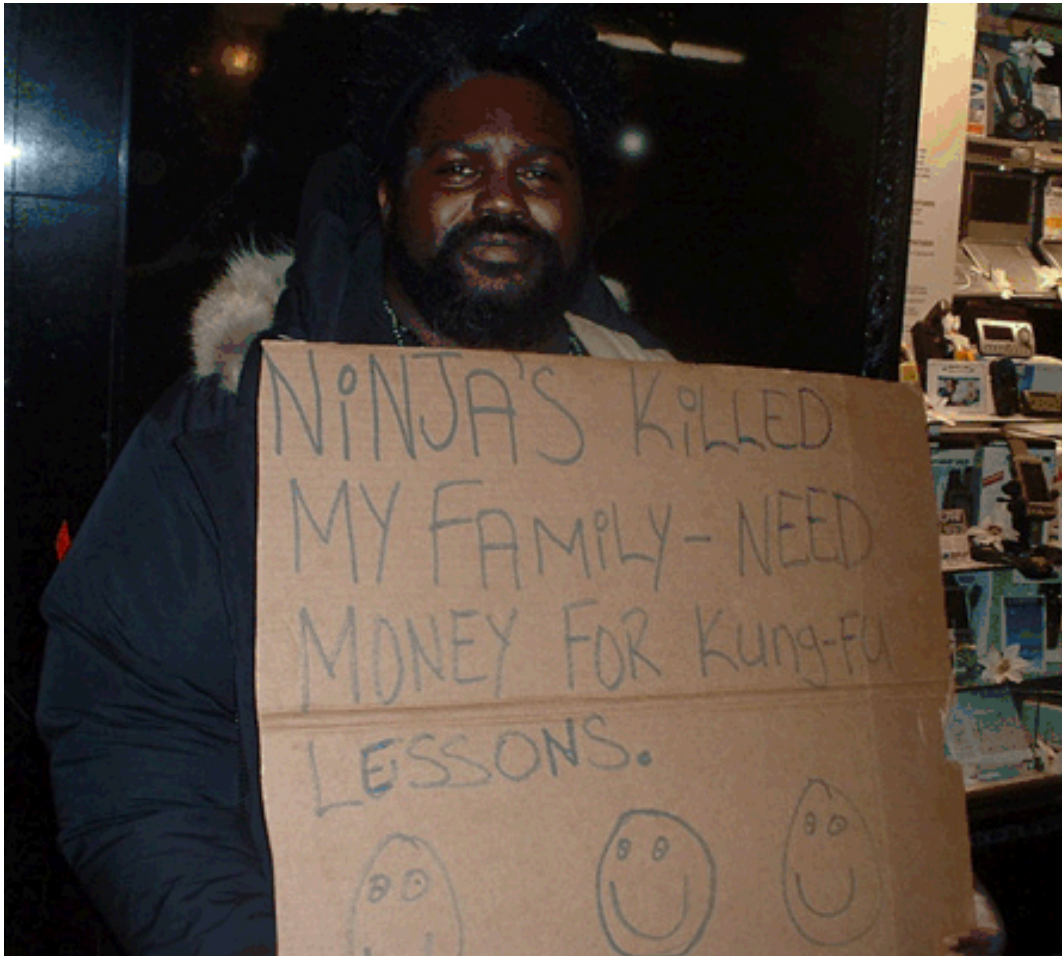 NiNJA'S KiLLED
MY FAMiLY - NEED
MONEY FOR Kung-Fu
LESSONS.